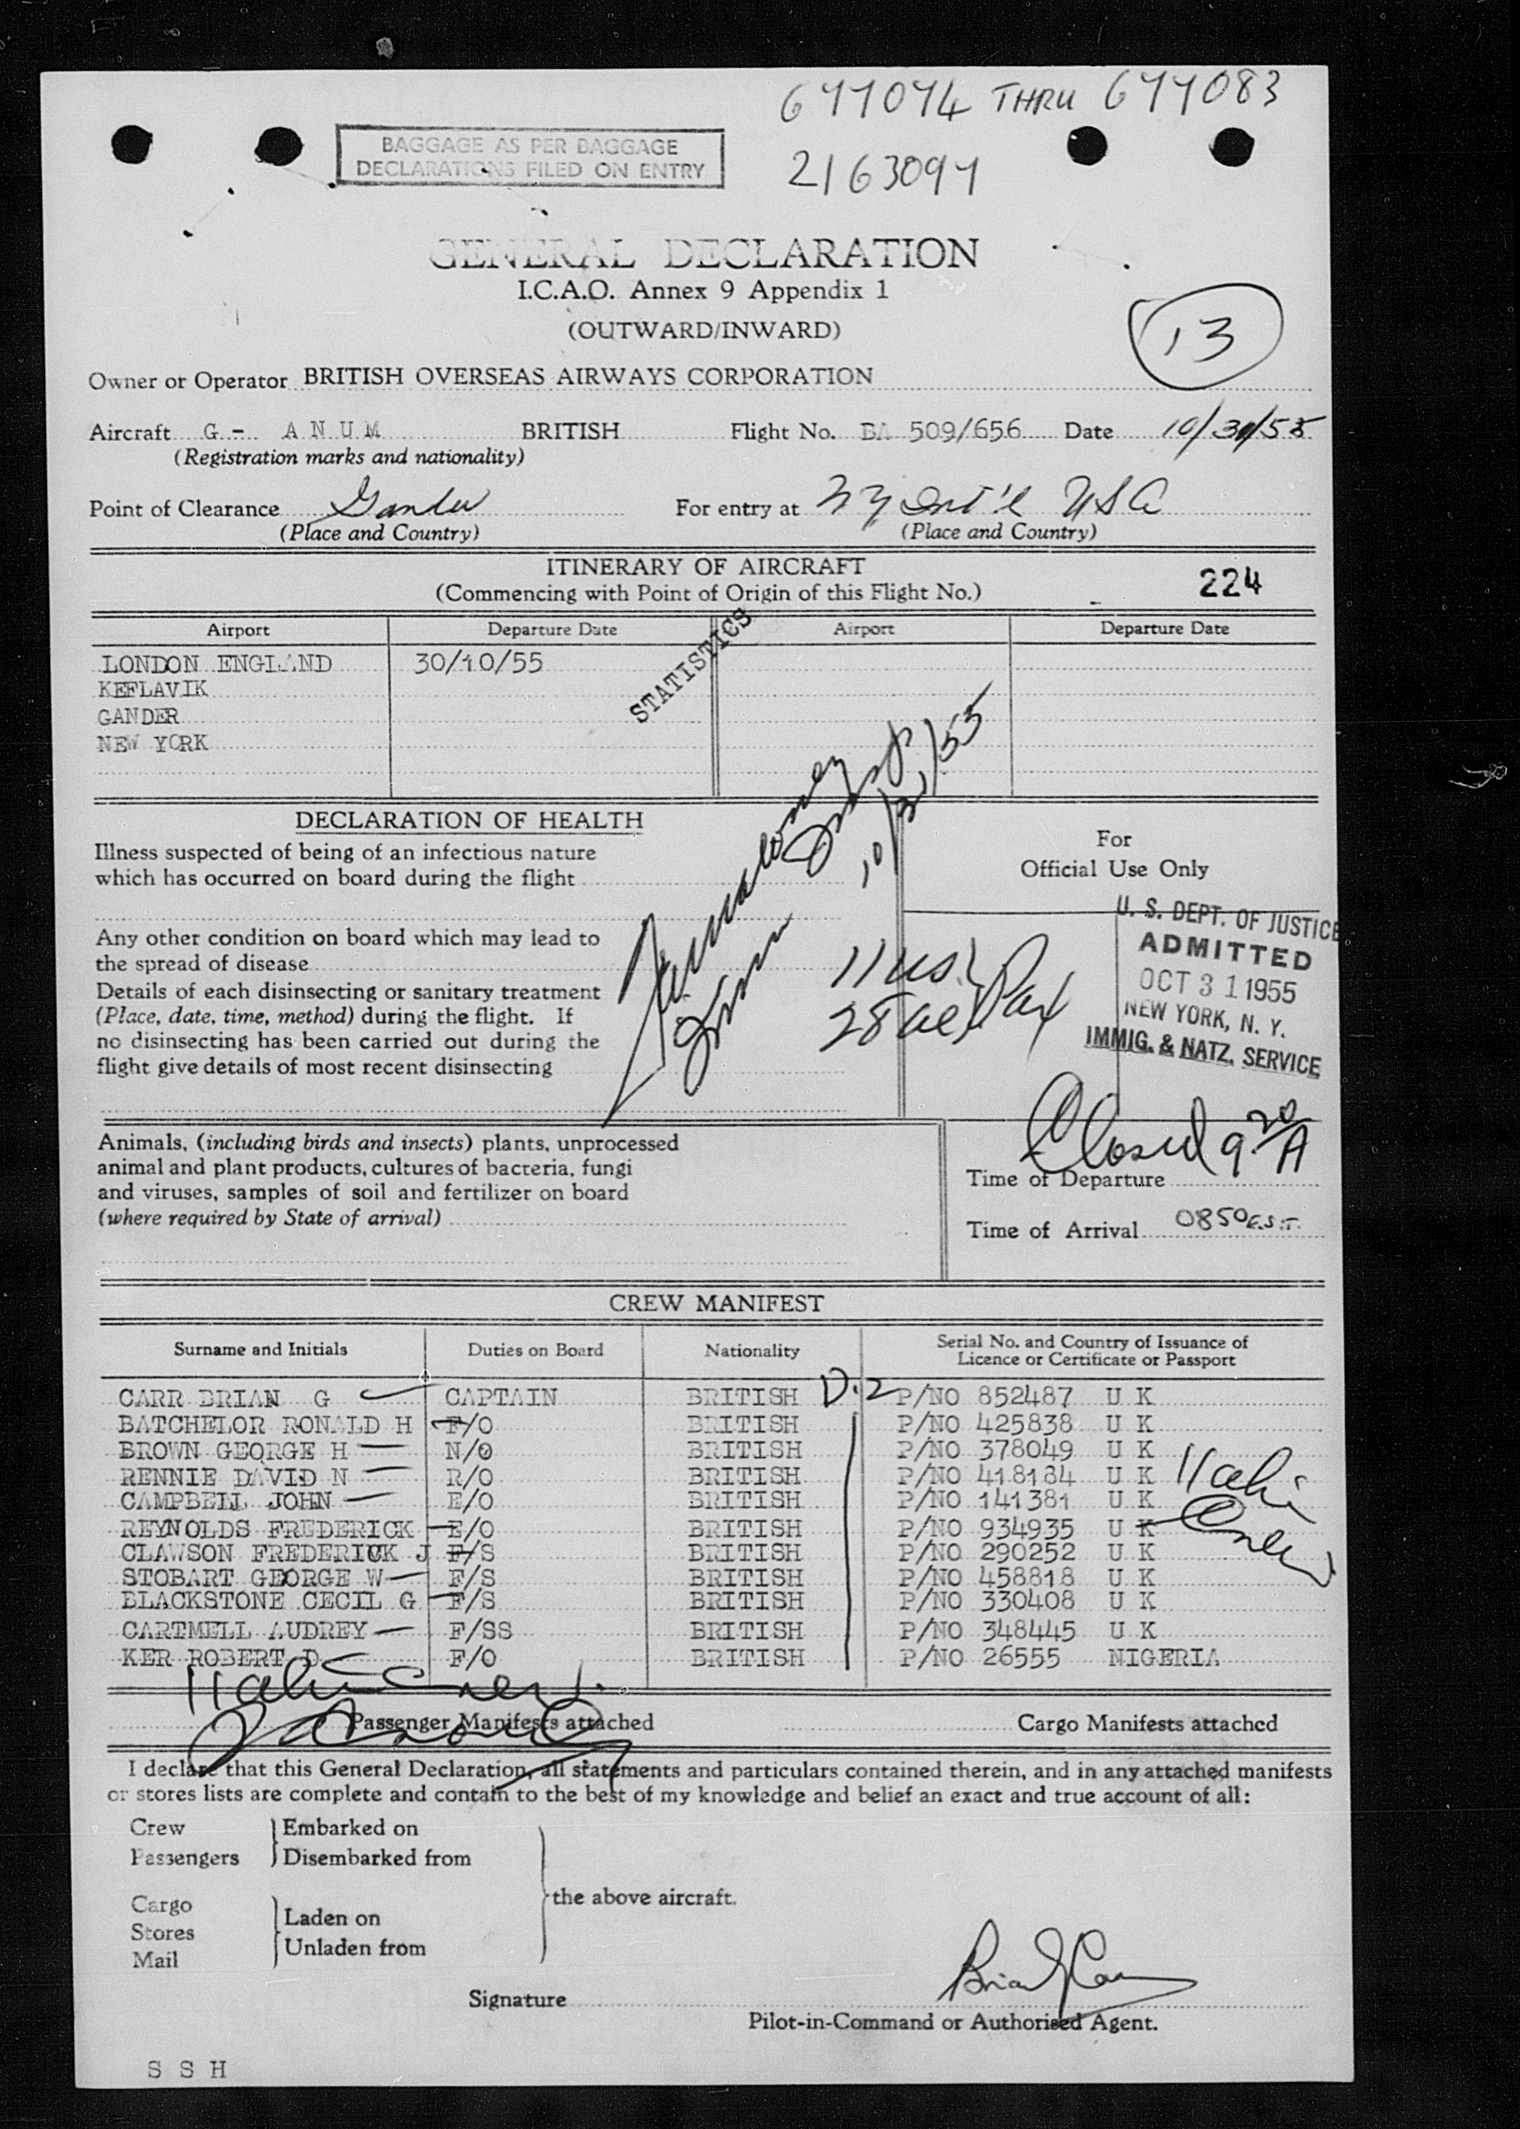 677074 THRU 677083
BAGGAGE AS PER BAGGAGE
DECLARATIONS FILED ON ENTRY
2163097
GENERAL DECLARATION
I.C.A.O. Annex 9 Appendix 1
(OUTWARD/INWARD)
13
Owner or Operator BRITISH OVERSEAS AIRWAYS CORPORATION
Aircraft G - ANUM BRITISH Flight No. BA 509/656 Date 10/30/55
(Registration marks and nationality)
Point of Clearance Gander For entry at NY Int'l USA
(Place and Country) (Place and Country)
ITINERARY OF AIRCRAFT
(Commencing with Point of Origin of this Flight No.) 224
Airport Departure Date Airport Departure Date
LONDON ENGLAND 30/10/55
KEFLAVIK
GANDER
NEW YORK
STATISTICS
DECLARATION OF HEALTH
Illness suspected of being of an infectious nature
which has occurred on board during the flight
Any other condition on board which may lead to
the spread of disease
Details of each disinsecting or sanitary treatment
(Place, date, time, method) during the flight. If
no disinsecting has been carried out during the
flight give details of most recent disinsecting
Immin Insp
10/31/55
For
Official Use Only
11 us.
28 ae Pax
U. S. DEPT. OF JUSTICE
ADMITTED
OCT 31 1955
NEW YORK, N. Y.
IMMIG. & NATZ. SERVICE
Animals, (including birds and insects) plants, unprocessed
animal and plant products, cultures of bacteria, fungi
and viruses, samples of soil and fertilizer on board
(where required by State of arrival)
Closed 9 20 A
Time of Departure
Time of Arrival 0850 E.S.T.
CREW MANIFEST
Surname and Initials Duties on Board Nationality Serial No. and Country of Issuance of
Licence or Certificate or Passport
CARR BRIAN G CAPTAIN BRITISH D.2 P/NO 852487 U K
BATCHELOR RONALD H F/O BRITISH P/NO 425838 U K
BROWN GEORGE H N/O BRITISH P/NO 378049 U K
RENNIE DAVID N R/O BRITISH P/NO 418184 U K
CAMPBELL JOHN E/O BRITISH P/NO 141381 U K
REYNOLDS FREDERICK E/O BRITISH P/NO 934935 U K
CLAWSON FREDERICK J F/S BRITISH P/NO 290252 U K
STOBART GEORGE W F/S BRITISH P/NO 458818 U K
BLACKSTONE CECIL G F/S BRITISH P/NO 330408 U K
CARTMELL AUDREY F/SS BRITISH P/NO 348445 U K
KER ROBERT D F/O BRITISH P/NO 26555 NIGERIA
11 ali Crew
11 ali Crew
Passenger Manifests attached Cargo Manifests attached
I declare that this General Declaration, all statements and particulars contained therein, and in any attached manifests
or stores lists are complete and contain to the best of my knowledge and belief an exact and true account of all:
Crew Embarked on
Passengers Disembarked from
the above aircraft.
Cargo
Stores Laden on
Mail Unladen from
Brian G Carr
Signature
Pilot-in-Command or Authorised Agent.
S S H